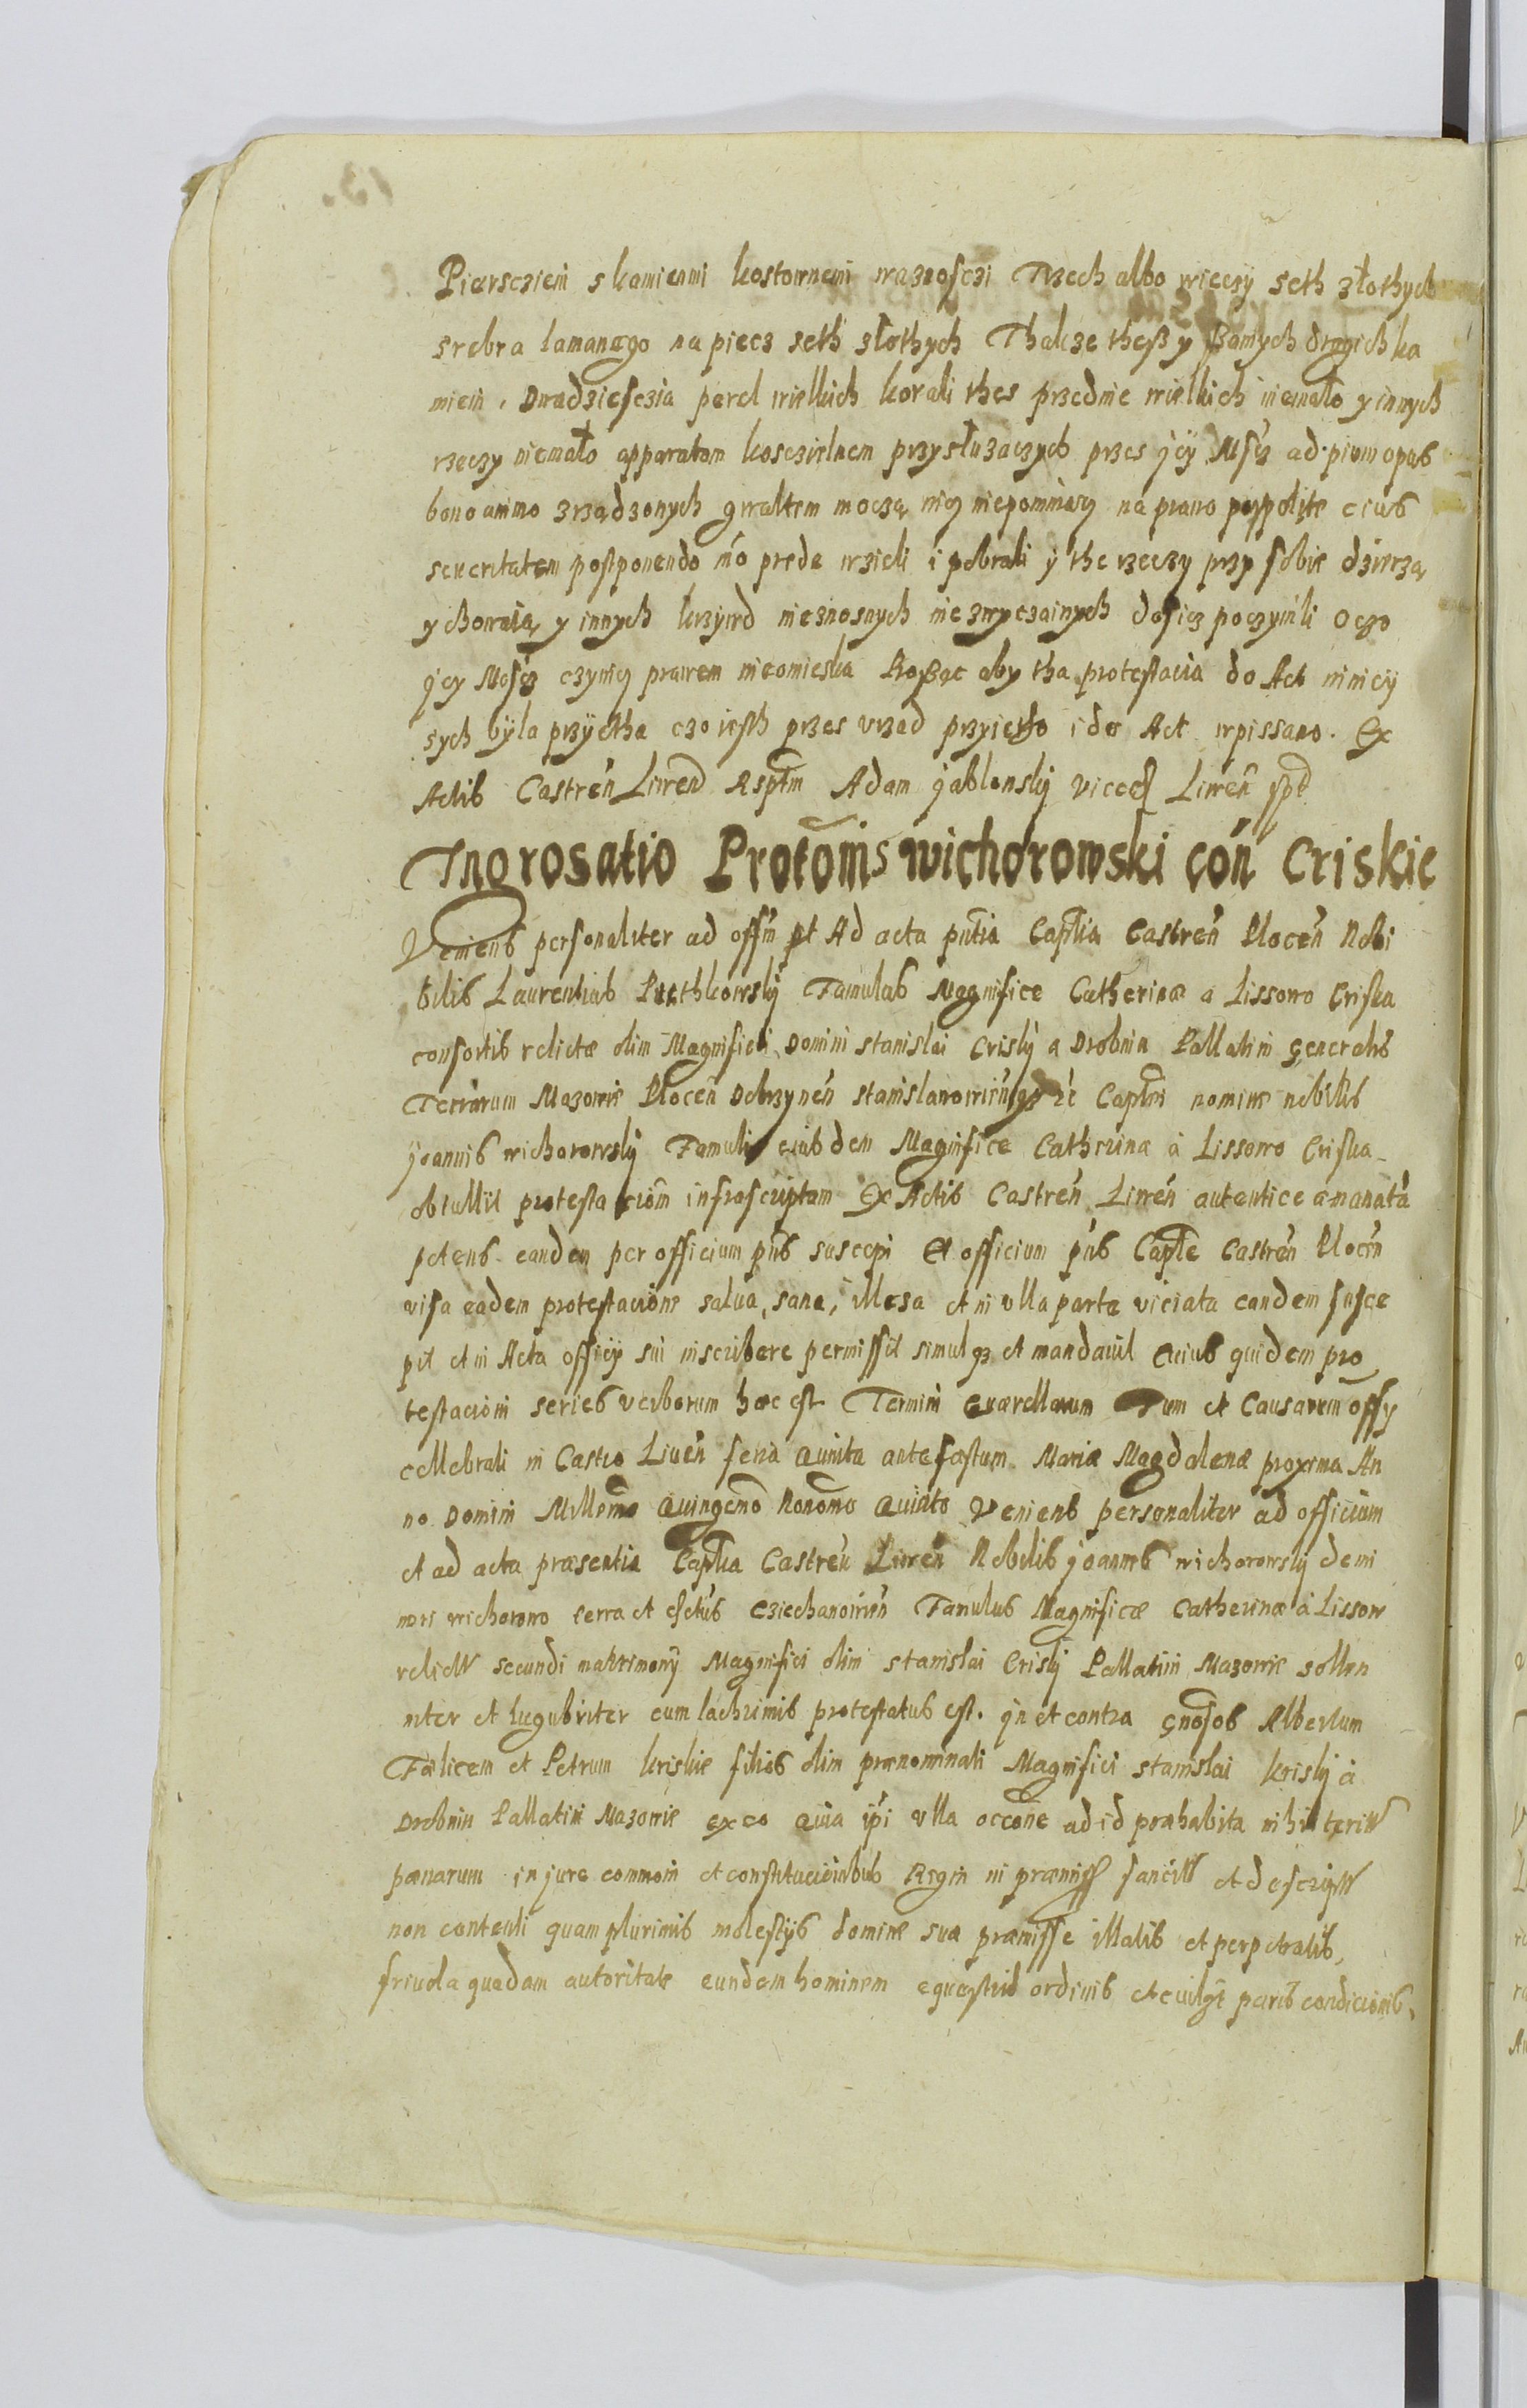 Pierscziem s kamienmi kostownemi waznosczi Trzech albo wieczy seth złothych
srebra lamanego na piecz seth złothych Thakze thesz y samych drogich ka
mieni, Dwadziesczia perel wielkich korali thes przednie wielkich niemało y innych
rzeczy niemało apparatom kosczielnem przysłuzaczych przes jey Msczi ad pium opus
bono animo zrządzonych gwałtem moczą nicz niepomniacz na prawo pospolite eius
seueritatem postponendo in predę wzieli i pobrali y the rzeczy przy sobie dzierzą
y chowaią y innych krzywd nieznosnych niezwyczainych dosicz poczynili Oczo
jey Mscz czynicz prawem nieomieska Prosząc aby tha protestacia do Act ninieij
sych była przyetha czo iesth przes vrząd przyietho i do Act wpissano. Ex
Actis Castren Liwen Rsptm Adam jablonskij vice Liwen spt
Ingrosatio Protōnis wichorowski cón Criskie
Veniens personaliter ad offm et Ad acta pntia Captlia Castren Plocen Nobi
bilis Laurentius Puthkowskij Famulus Magnifice Catherinæ a Lissowo Criska
consortis relictæ olim Magnifici Domini stanislai Criskij a Drobnin Pallatini generalis
Terrarum Mazowie Plocen Dobrzynen stanislawowien qz zc Captei nomine nobilis
joannis wichorowskij Famuli eiusdem Magnifice Catherinæ à Lissowo Criska
obtullit protestacióm infrascriptam Ex Actis Castren Liwen autentice emanatā
petens eandem per officium pns suscepi Et officium pns Captle Castren Plocen
visa eadem protestacione salua, sana, illesa et in vlla parte viciata eandem susce
pit et in Acta officij sui inscribere permissit simulqz et mandauit Cuius quidem pro
testacioni series verborum hæc est Termini Querellarum Tum et Causarum offy
cellebrati in Castro Liuen feria Quinta ante festum Mariæ Magdalenæ proxima An
no Domini Millmo Quingemo Nonomo Quinto Veniens personaliter ad officium
et ad acta præsentia Captlia Castren Liwen Nobilis joannes wichorowskij de mi
nori wichorowo terra et dsctus Cziechanowien Famulus Magnificæ Catherinæ à Lissow
relictæ secundi matrimonij Magnifici olim stanislai Criskij Pallatini Mazowie sollen
niter et lugubriter cum lachrimis protestatus est. jn et contra gnosos Albertum
Fælicem et Petrum kriskie filios olim prænominati Magnifici stanislai kriskij à
Drobnin Pallatini Mazowie ex eo Quia ipi vlla occōne ad id præhabita nihil
pænarum in jure commoni et constitucionibus Regni in præmiss sancit et descript
non contenti quam plurimis molestijs dominæ suæ præmisse illatis et perpetratis,
friuola quadam autoritate eundem hominem equestris ordinis et paris condicionis,